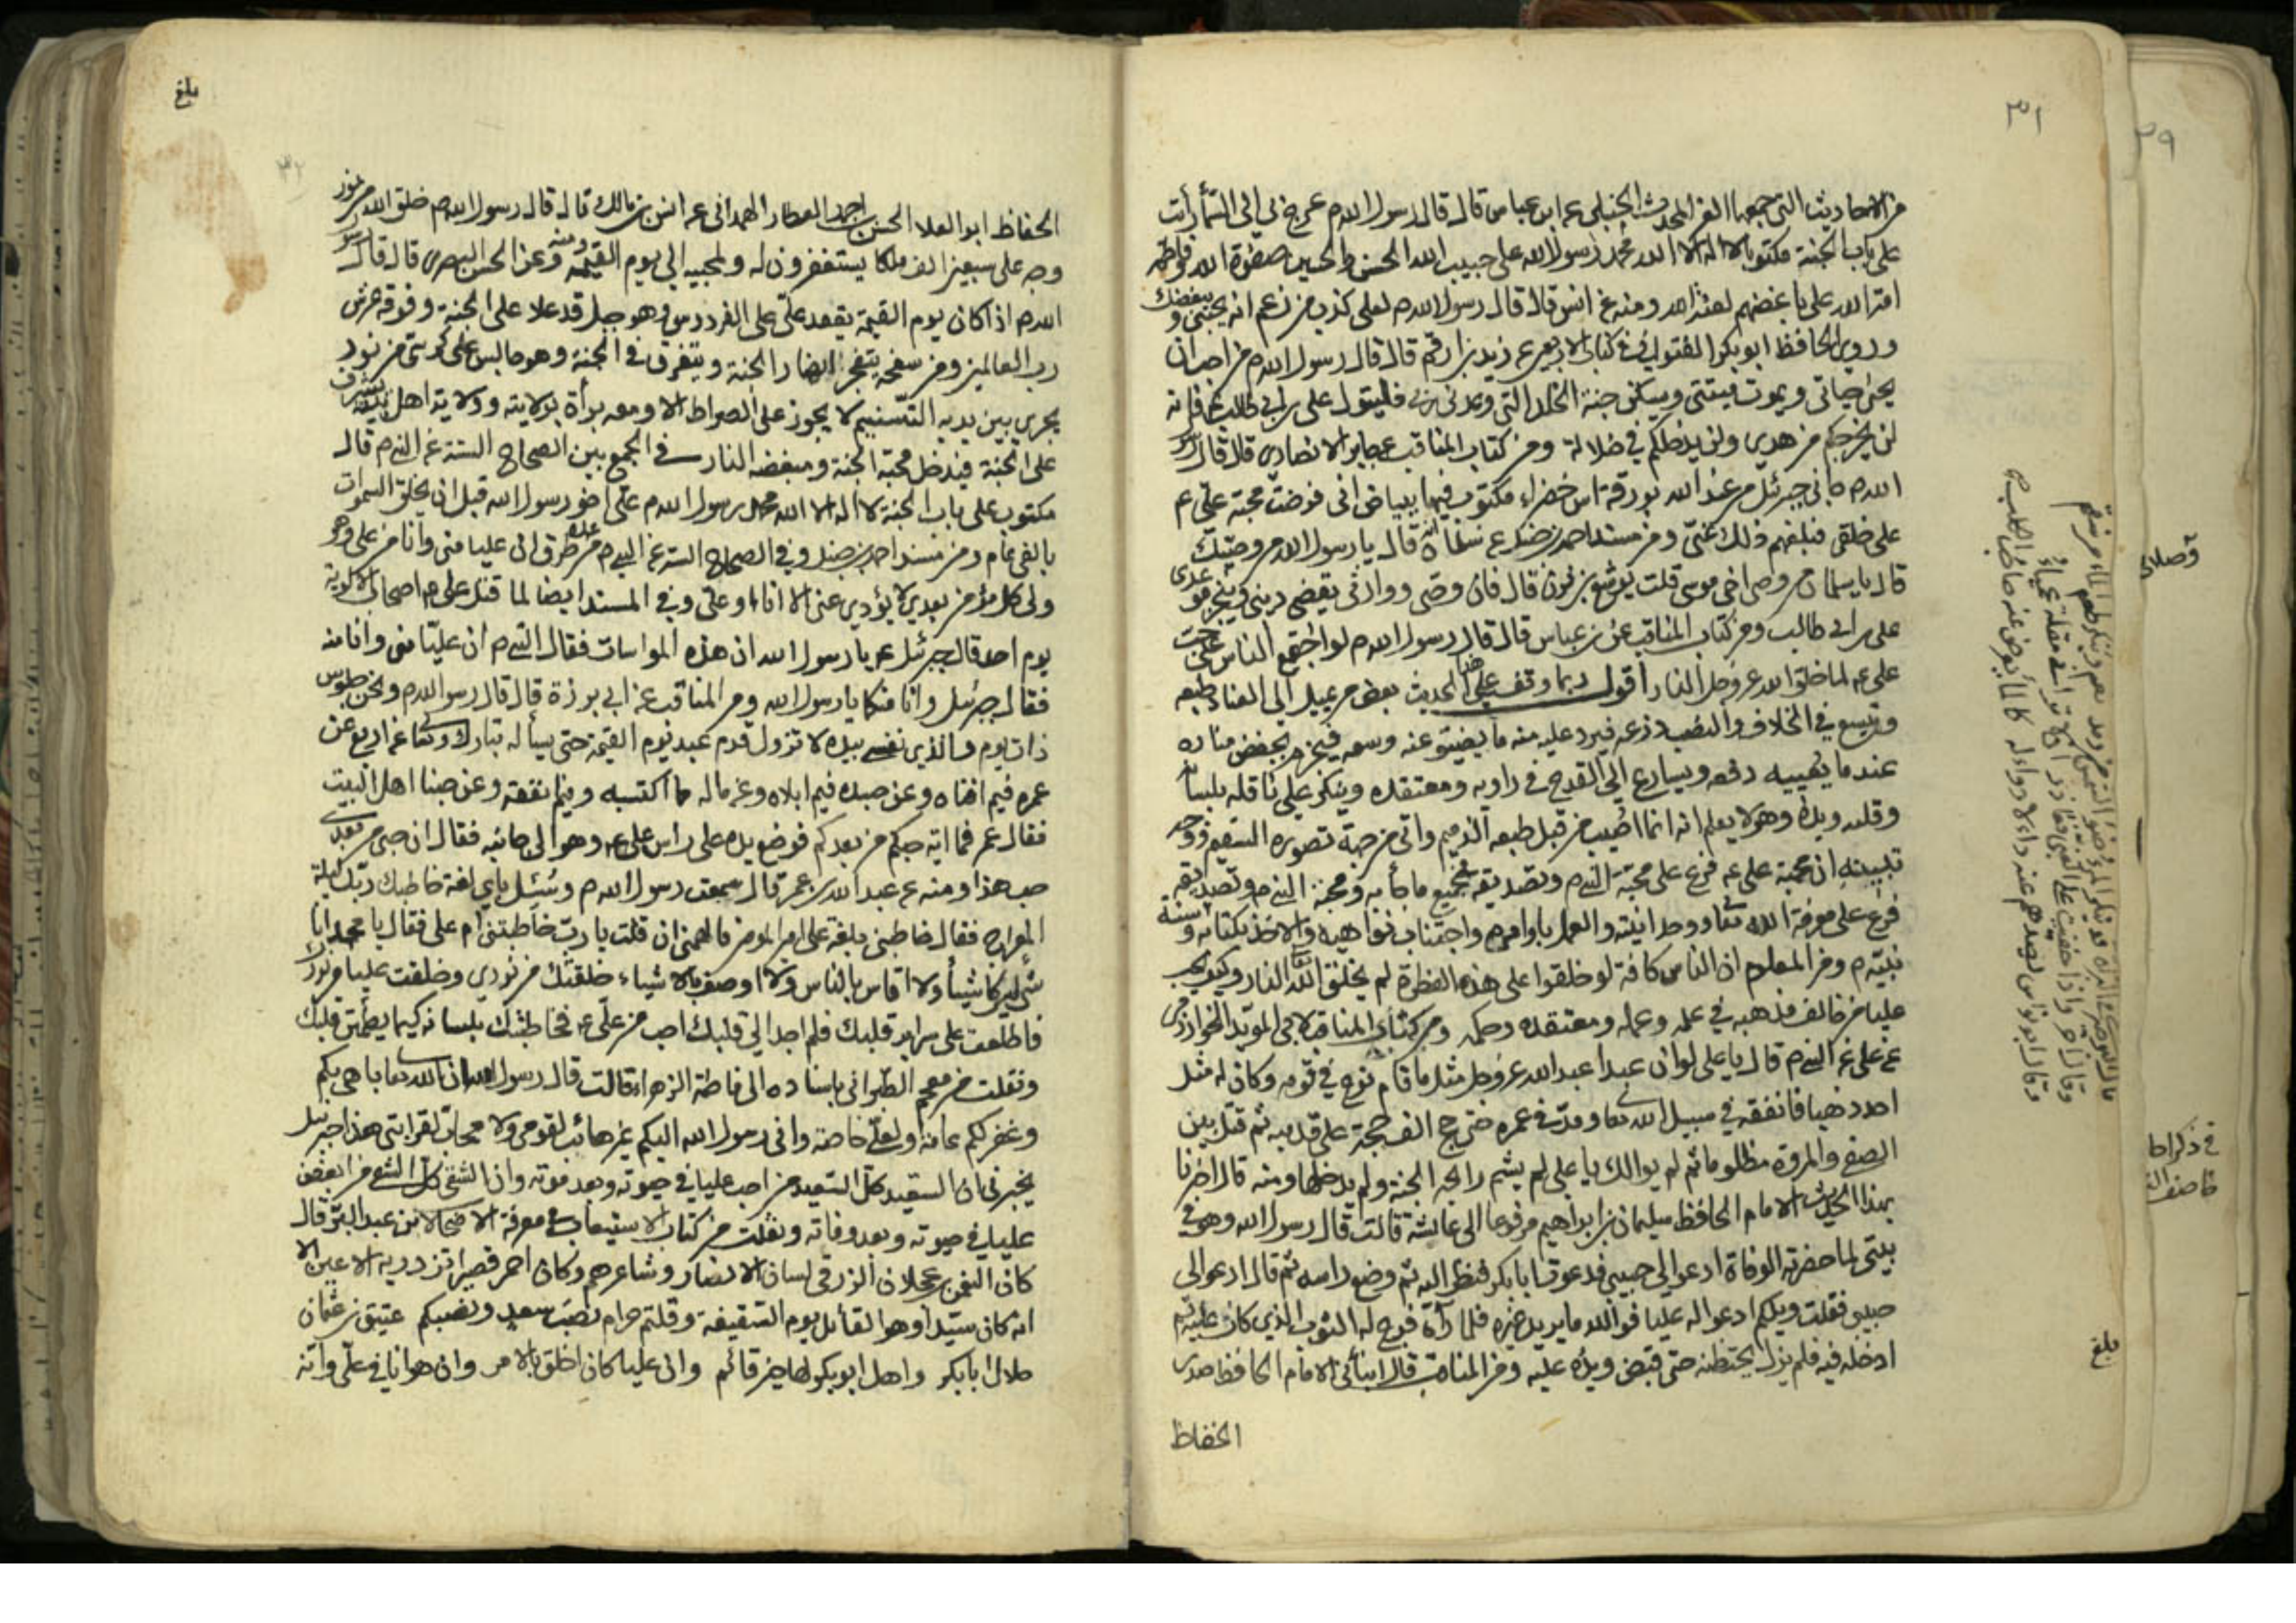 ٣١
من الاحاديث التي جمعها العز المحدث الحنبلي عن ابن عباس قال قال رسول الله م عرج بي الى السماء رأيت
على باب الجنة مكتوبا لا اله الا الله محمد رسول الله علي حبيب الله الحسن والحسين صفوة الله وفاطمة
امة الله على باغضهم لعنة الله ومنه عن انس قال قال رسول الله م لعلي كذب من زعم انه يحبني ويبغضك
وروى الحافظ ابو بكر في كتاب الاربعين عن زيد بن ارقم قال قال رسول الله م من احب ان
يحيى حياتي ويموت ميتتي ويسكن جنة الخلد التي وعدني ربي فليتول علي بن ابي طالب فانه
لن يخرجكم من هدى ولن يدخلكم في ضلالة ومن كتاب المناقب عن جابر الانصاري قال قال رسول
الله م جاني جبرئيل من عند الله بورقة اس خضراء مكتوب فيها ببياض اني فرضت محبة علي ع
على خلقي فبلغهم ذلك عني ومن مسند احمد بن حنبل عن سلمان انه قال يا رسول الله من وصيك
قال يا سلمان من وصي اخي موسى قلت يوشع بن نون قال فان وصي ووارثي يقضي ديني وينجز موعدي
علي بن ابي طالب ومن كتاب المناقب عن بن عباس قال قال رسول الله م لو اجتمع الناس على حب
علي ع لما خلق الله عز وجل النار اقول ربما وقف على هذا الحديث بعض من يميل الى العناد طبعه
ويتسع في الخلاف والنصب ذرعه فيرد عليه منه ما يضيق عنه وسعه فينخرم بخفض مناره
عندما يهيبه دفعه ويسارع الى القدح في راويه ومعتقده وينكر على ناقله بلسانه
وقلبه ويده وهو لا يعلم انه انما اصيب من قبل طبعه الذميم واتى من جهة تصوره السقيم ووجه
تبيينه ان محبة علي ع فرع على محبة النبي م وتصديقه بجميع ما جأ به ومحبة النبي م وتصديقه
فرع على معرفة الله تعا ووحدانيته والعمل باوامره واجتناب نواهيه والاخذ بكتابه وسنة
نبيه م ومن المعلوم ان الناس كافة لو خلقوا على هذه الفطرة لم يخلق الله النار وكيف يحب
عليا من خالف مذهبه في علمه وعمله ومعتقده وحكمه ومن كتاب المناقب لابي المؤيد الخوارزمي
عن علي عن النبي م قال يا علي لو ان عبدا عبد الله عز وجل مثل ما قام نوح في قومه وكان له مثل
احد ذهبا فانفقه في سبيل الله تعا ومد في عمره حتى حج الف حجة على قدميه ثم قتل بين
الصفا والمروة مظلوما ثم لم يوالك يا علي لم يشم رايحة الجنة ولم يدخلها ومنه قال اخبرنا
بهذا الحديث الامام الحافظ سليمان بن ابراهيم مرفوعا الى عائشة قالت قال رسول الله وهو في
بيتي لما حضرته الوفاة ادعوا لي حبيبي فدعوت ابا بكر فنظر اليه ثم وضع راسه ثم قال ادعوا لي
حبيبي فقلت ويلكم ادعوا له عليا فوالله ما يريد غيره فلما رآه فرج له الثوب الذي كان عليه ثم
ادخله فيه فلم يزل يحتضنه حتى قبض ويده عليه ومن المناقب قال انبأني الامام الحافظ صدر
الحفاظ
بلغ
بلغ
الحفاظ ابو العلا الحسن بن احمد العطار الهمداني عن انس بن مالك قال قال رسول الله م خلق الله من نور
وجه علي سبعين الف ملكا يستغفرون له ولمحبيه الى يوم القيمة ومنه وعن الحسن البصري قال قال رسو
الله م اذا كان يوم القيمة يقعد علي على الفردوس وهو جبل قد علا على الجنة وفوقه عرش
رب العالمين ومن سفحه يتفجر انهار الجنة ويتفرق في الجنة وهو جالس على كرسي من نور
يجري بين يديه التسنيم لا يجوز على الصراط الا ومعه برأة بولايته وولاية اهل بيته يشرف
على الجنة فيدخل محبه الجنة ومبغضه النار في الجمع بين الصحاح الستة عن النبي م قال
مكتوب على باب الجنة لا اله الا الله محمد رسول الله م علي اخو رسول الله قبل ان يخلق السموات
بالفي عام ومن مسند احمد بن حنبل وفي الصحاح الستة عن النبي م من عدة طرق ان عليا مني وانا من علي وهو
ولي كل مؤمن بعدي لا يؤدي عني الا انا او علي وفي المسند ايضا لما قتل علي ع اصحاب الالوية
يوم احد قال جبرئيل ع يا رسول الله ان هذه المواسات فقال النبي م ان عليا مني وانا منه
فقال جبرئيل وانا منكما يا رسول الله ومن المناقب عن ابي برزة قال قال رسول الله م ونحن جلوس
ذات يوم والذي نفسي بيده لا تزول قدم عبد يوم القيمة حتى يسأله تبارك وتعا عن اربع عن
عمره فيم افناه وعن جسده فيم ابلاه وعن ماله مما اكتسبه وفيم انفقه وعن حبنا اهل البيت
فقال عمر فما اية حبكم من بعدكم فوضع يده على راس علي ع وهو الى جانبه فقال ان حبي من بعدي
حب هذا ومنه عن عبد الله بن عمر قال سمعت رسول الله م وسئل باي لغة خاطبك ربك ليلة
المعراج فقال خاطبني بلغة علي فالهمني ان قلت يا رب خاطبتني ام علي فقال يا محمد انا
شئ ليس كاشيأ ولا اقاس بالناس ولا اوصف بالاشياء خلقتك من نوري وخلقت عليا من نورك
فاطلعت على سراير قلبك فلم اجد الى قلبك احب من علي ع فخاطبتك بلسانه كيما يطمئن قلبك
ونقلت من معجم الطبراني باسناده الى فاطمة الزهراء قالت قال رسول الله ان الله تعا باهى بكم
وغفر لكم عامة ولعلي خاصة واني رسول الله اليكم غير هائب لقومي ولا محاب لقرابتي هذا جبرئيل
يخبرني ان السعيد كل السعيد من احب عليا في حيوته وبعد موته وان الشقي كل الشقي من ابغض
عليا في حيوته وبعد وفاته ونقلت من كتاب الاستيعاب في معرفة الاصحاب لابن عبد البر قال
كان النعمن بن عجلان الزرقي لسان الانصار وشاعرهم وكان احمر قصيرا تزدريه الاعين الا
انه كان سيدا وهو القائل يوم السقيفة وقلتم حرام نصب سعد ونصبكم عتيق بن عثمان
حلال ابا بكر واهل ابو بكر لها خير قائم وان عليا كان اخلق بالامر وان هوانا في علي وانه